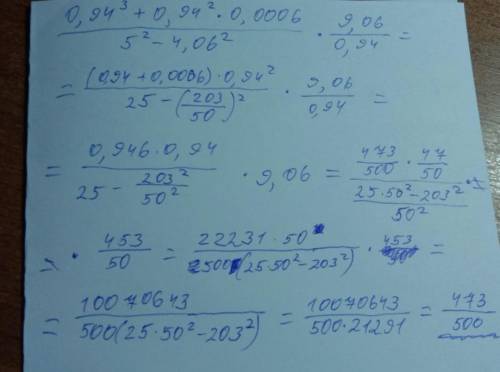 (0,94³ + 0,94² · 0,0006) / (5² - 4,06²) · 9,06/0,94 =
= ((0,94 + 0,0006) · 0,94²) / (25 - (203/50)²) · 9,06/0,94 =
= (0,946 · 0,94) / (25 - 203²/50²) · 9,06 = (473/500 · 47/50) / ((25 · 50² - 203²)/50²) ·
· 453/50 = (22231 · 50) / (500(25 · 50² - 203²)) · 453 =
= 10070643 / (500(25 · 50² - 203²)) = 10070643 / (500 · 21291) = 473/500